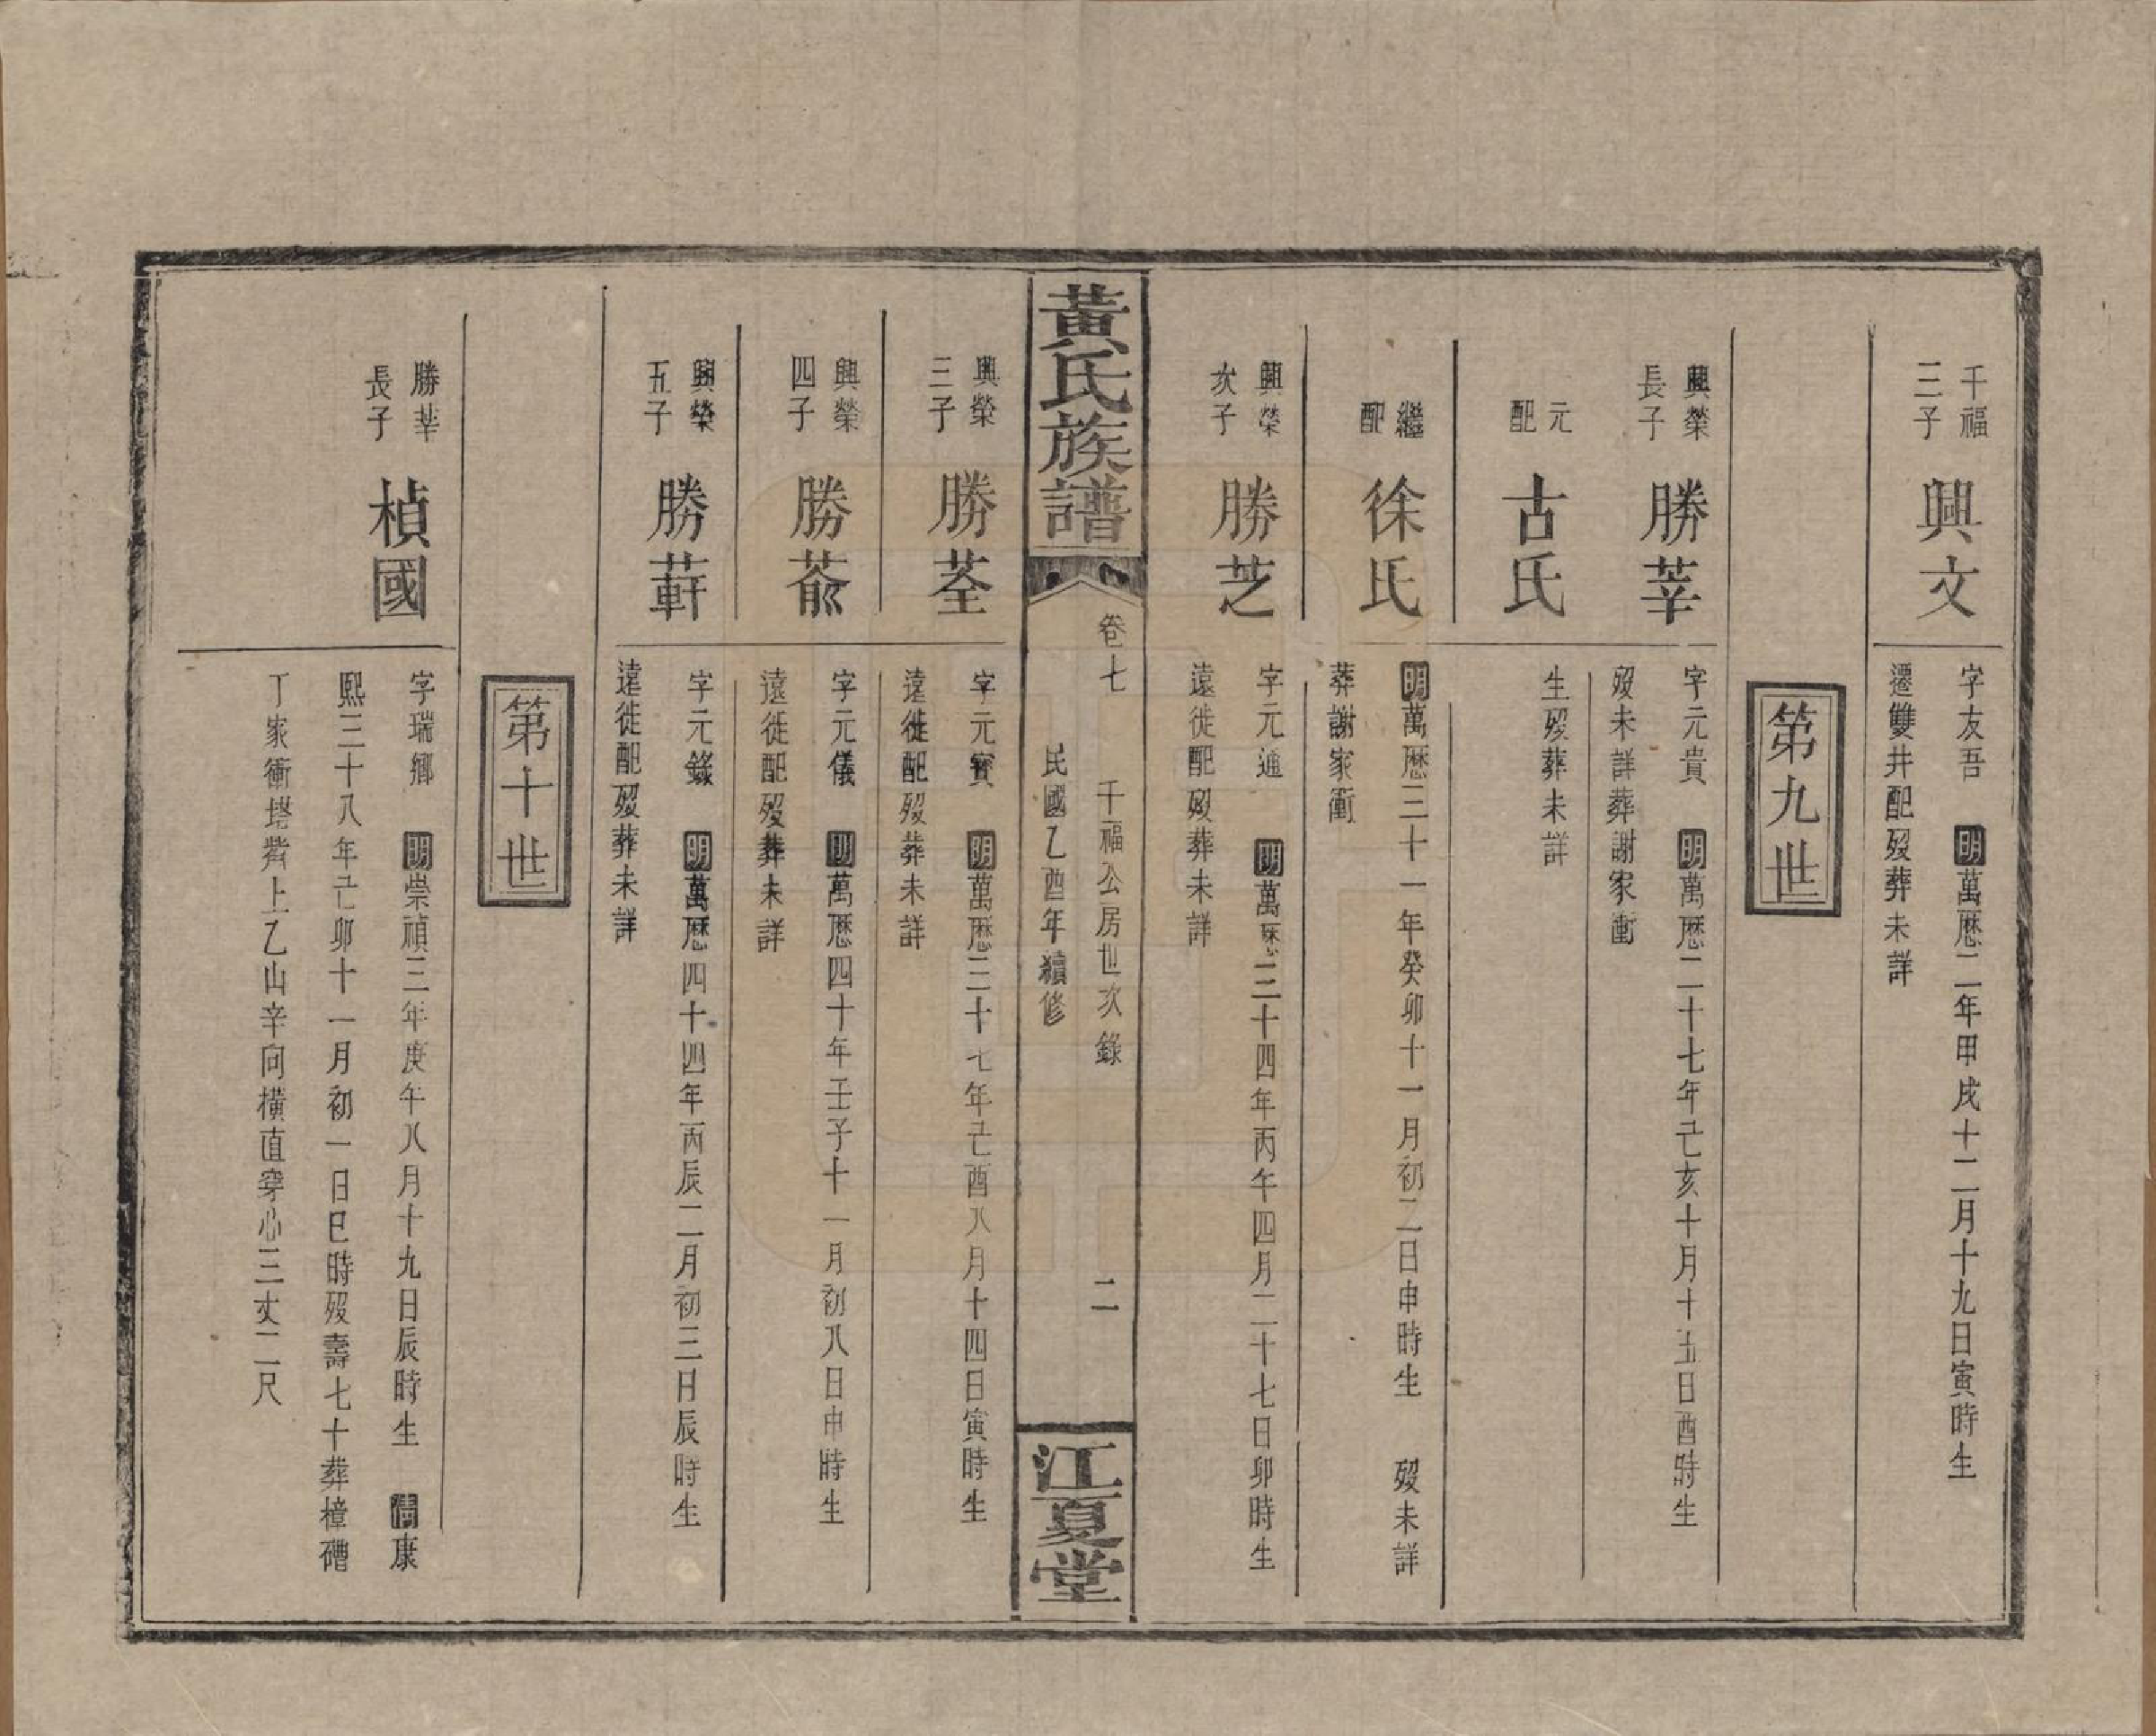 千福
三子
興文
字友吾　明萬厯二年甲戌十二月十九日寅時生
遷雙井配歿葬未詳
第九世
興榮
長子
勝莘
字元貴　明萬厯二十七年己亥十月十五日酉時生
歿未詳葬謝家衝
元
配
古氏
生歿葬未詳
繼
配
徐氏
明萬厯三十一年癸卯十一月初二日申時生　歿未詳
葬謝家衝
興榮
次子
勝芝
字元通　明萬厯三十四年丙午四月二十七日卯時生
遠徙配歿葬未詳
黃氏族譜
卷七　千福公房世次錄　二
民國乙酉年續修
江夏堂
興榮
三子
勝荃
字元寳　明萬厯三十七年己酉八月十四日寅時生
遠徙配歿葬未詳
興榮
四子
勝蕍
字元儀　明萬厯四十年壬子十一月初八日申時生
遠徙配歿葬未詳
興榮
五子
勝蓒
字元錄　明萬厯四十四年丙辰二月初三日辰時生
遠徙配歿葬未詳
第十世
勝莘
長子
楨國
字瑞鄉　明崇禎三年庚午八月十九日辰時生　清康
熙三十八年己卯十一月初一日巳時歿壽七十葬樟磳
丁家衝塆上乙山辛向橫直穿心三丈二尺